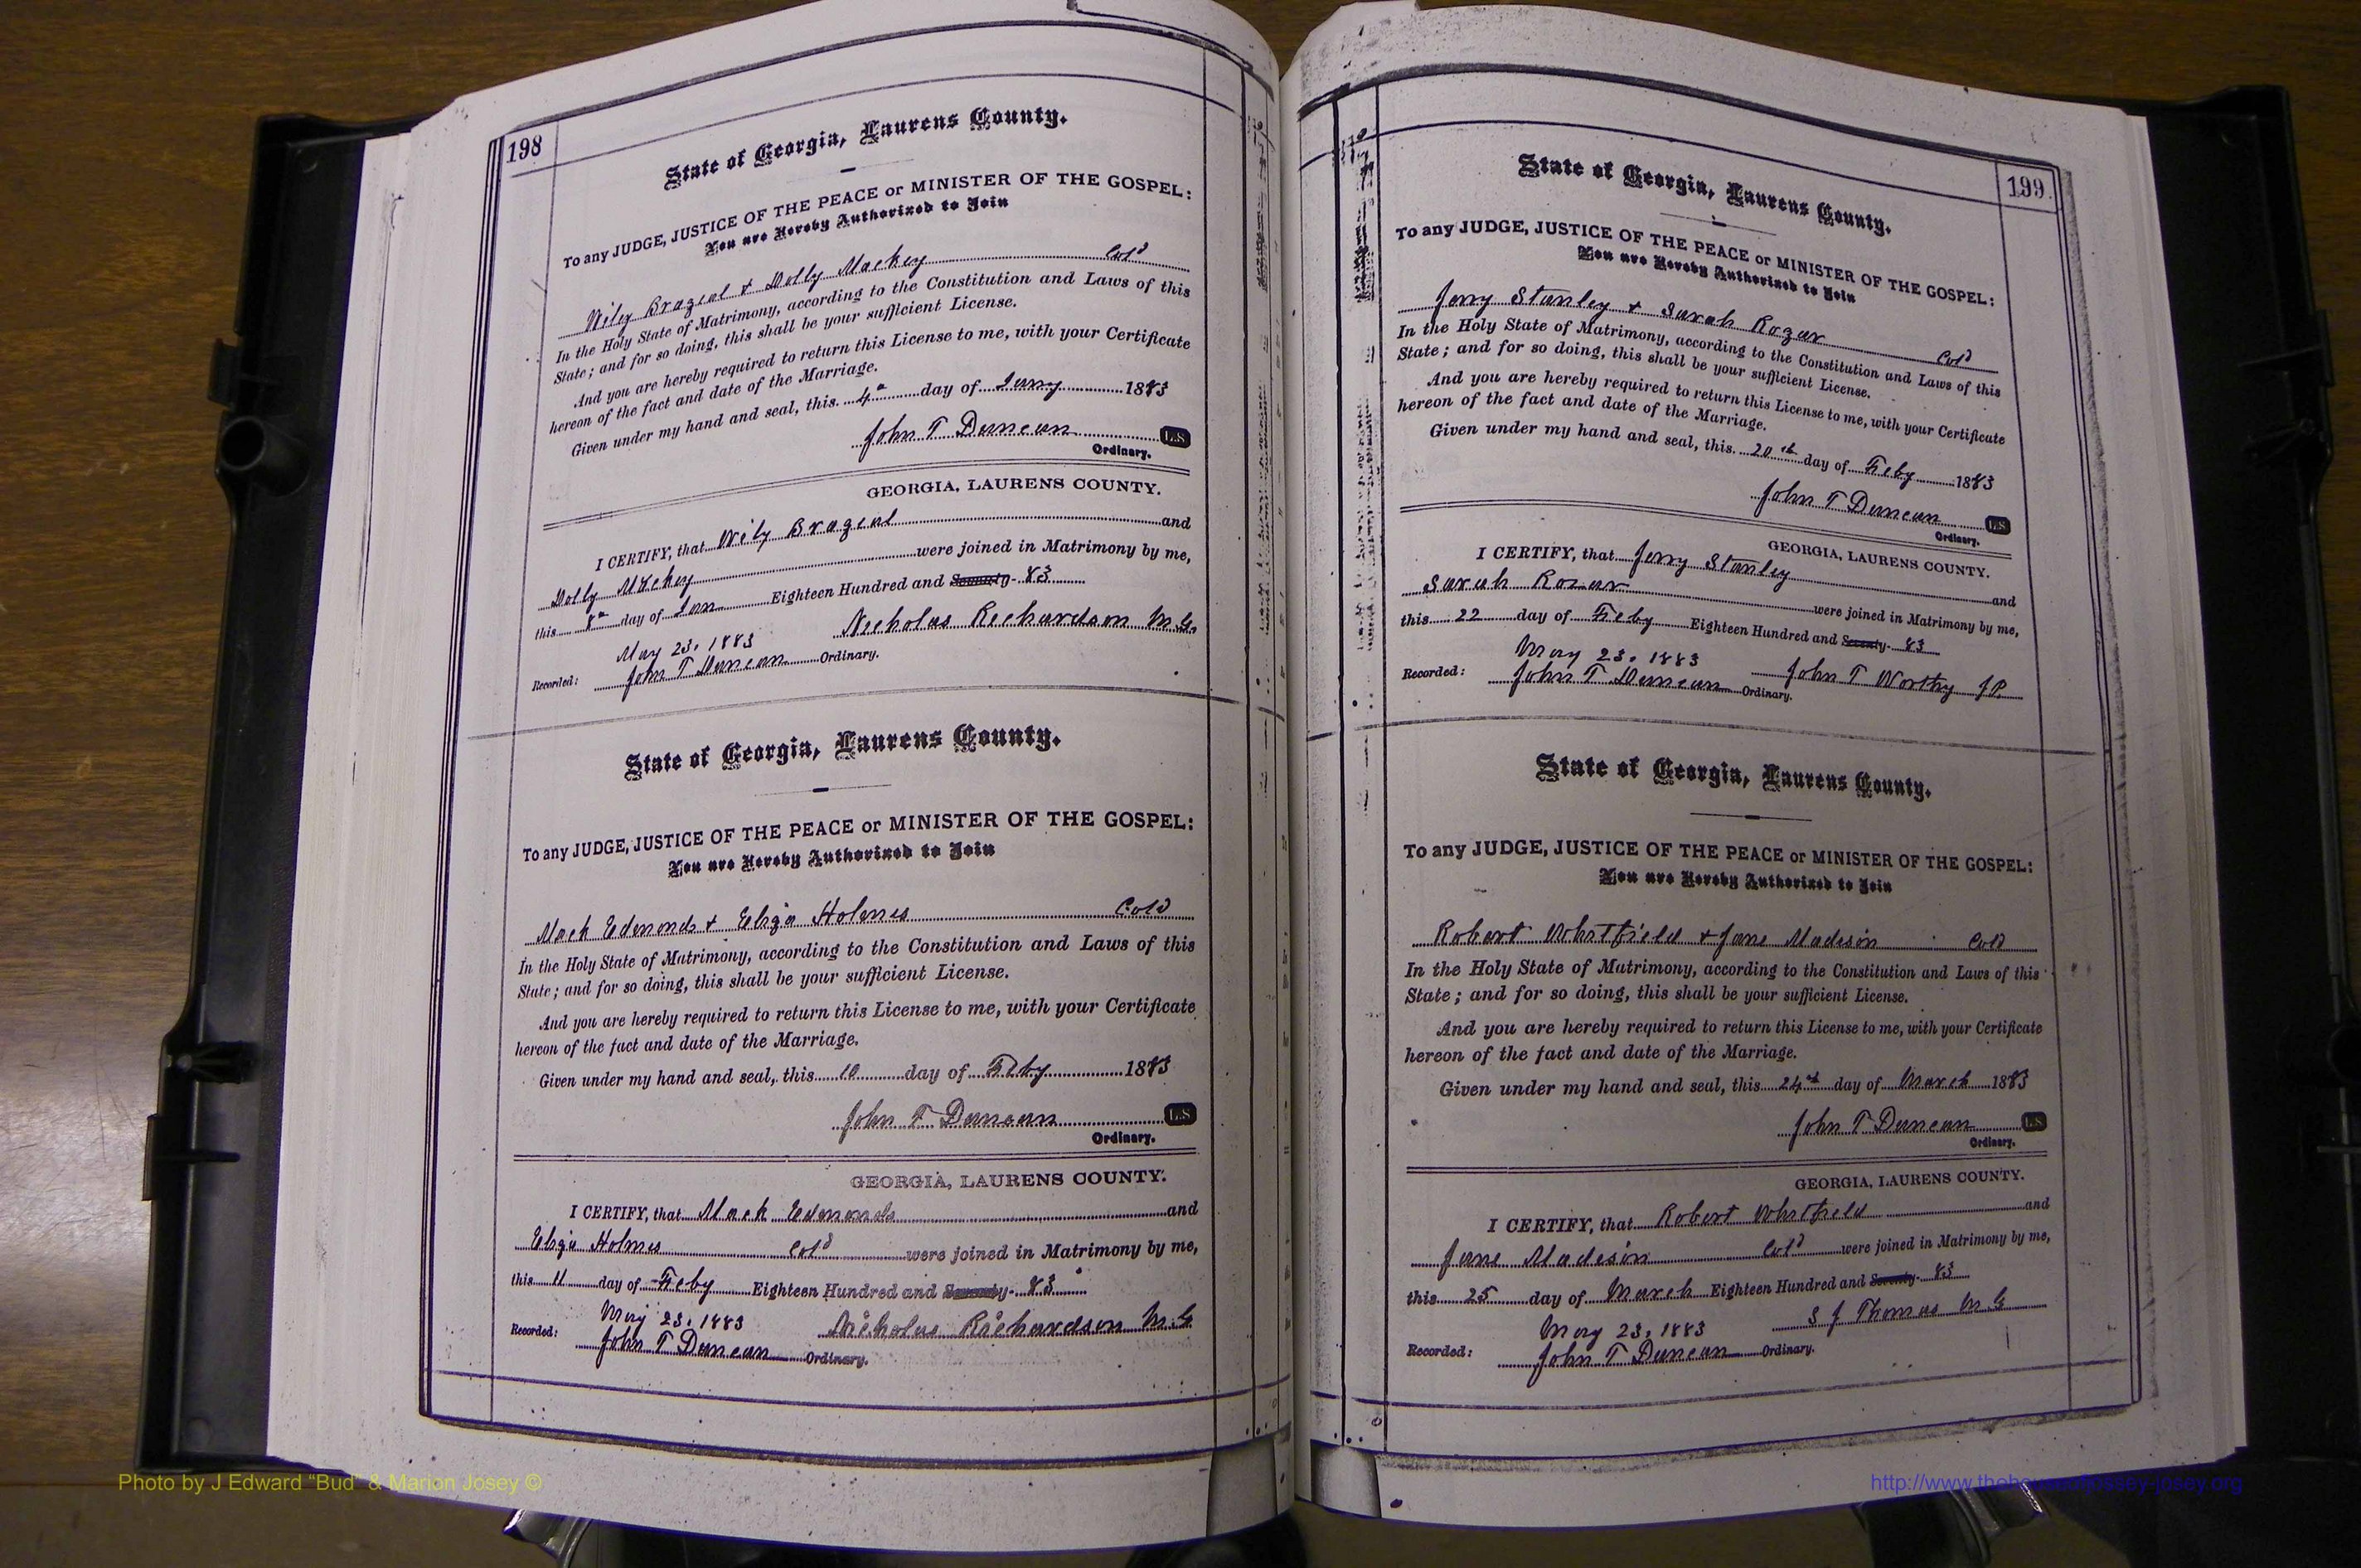 198
State of Georgia, Laurens County.
To any JUDGE, JUSTICE OF THE PEACE or MINISTER OF THE GOSPEL:
You are Hereby Authorized to Join
Wily Brazeal & Dolly Mackey Col'd
In the Holy State of Matrimony, according to the Constitution and Laws of this
State; and for so doing, this shall be your sufficient License.
And you are hereby required to return this License to me, with your Certificate
hereon of the fact and date of the Marriage.
Given under my hand and seal, this 4th day of Jany 1883
John T Duncan L.S
Ordinary.
GEORGIA, LAURENS COUNTY.
I CERTIFY, that Wily Brazeal and
Dolly Mackey were joined in Matrimony by me,
this 8th day of Jan Eighteen Hundred and Seventy- 83
Nicholas Richardson M.G.
May 23. 1883
Recorded: John T Duncan Ordinary.
State of Georgia, Laurens County.
To any JUDGE, JUSTICE OF THE PEACE or MINISTER OF THE GOSPEL:
You are Hereby Authorized to Join
Mack Edmonds & Eliza Holmes Col'd
In the Holy State of Matrimony, according to the Constitution and Laws of this
State; and for so doing, this shall be your sufficient License.
And you are hereby required to return this License to me, with your Certificate
hereon of the fact and date of the Marriage.
Given under my hand and seal, this 10 day of Feby 1883
John T Duncan L.S
Ordinary.
GEORGIA, LAURENS COUNTY.
I CERTIFY, that Mack Edmonds and
Eliza Holmes Col'd were joined in Matrimony by me,
this 11 day of Feby Eighteen Hundred and Seventy- 83
May 23. 1883 Nicholas Richardson M.G
Recorded: John T Duncan Ordinary.
199
State of Georgia, Laurens County.
To any JUDGE, JUSTICE OF THE PEACE or MINISTER OF THE GOSPEL:
You are Hereby Authorized to Join
Jerry Stanley & Sarah Rozar Col'd
In the Holy State of Matrimony, according to the Constitution and Laws of this
State; and for so doing, this shall be your sufficient License.
And you are hereby required to return this License to me, with your Certificate
hereon of the fact and date of the Marriage.
Given under my hand and seal, this 20th day of Feby 1883
John T Duncan L.S
Ordinary.
GEORGIA, LAURENS COUNTY.
I CERTIFY, that Jerry Stanley and
Sarah Rozar were joined in Matrimony by me,
this 22 day of Feby Eighteen Hundred and Seventy- 83
May 23. 1883 John T Worthy J.P.
Recorded: John T Duncan Ordinary.
State of Georgia, Laurens County.
To any JUDGE, JUSTICE OF THE PEACE or MINISTER OF THE GOSPEL:
You are Hereby Authorized to Join
Robert Whitfield & Jane Madison Col'd
In the Holy State of Matrimony, according to the Constitution and Laws of this
State; and for so doing, this shall be your sufficient License.
And you are hereby required to return this License to me, with your Certificate
hereon of the fact and date of the Marriage.
Given under my hand and seal, this 24th day of March 1883
John T Duncan L.S
Ordinary.
GEORGIA, LAURENS COUNTY.
I CERTIFY, that Robert Whitfield and
Jane Madison Col'd were joined in Matrimony by me,
this 25 day of March Eighteen Hundred and Seventy- 83
May 23. 1883 S J Thomas M.G
Recorded: John T Duncan Ordinary.
Photo by J Edward “Bud” & Marion Josey ©
http://www.thehouseofjossey-josey.org